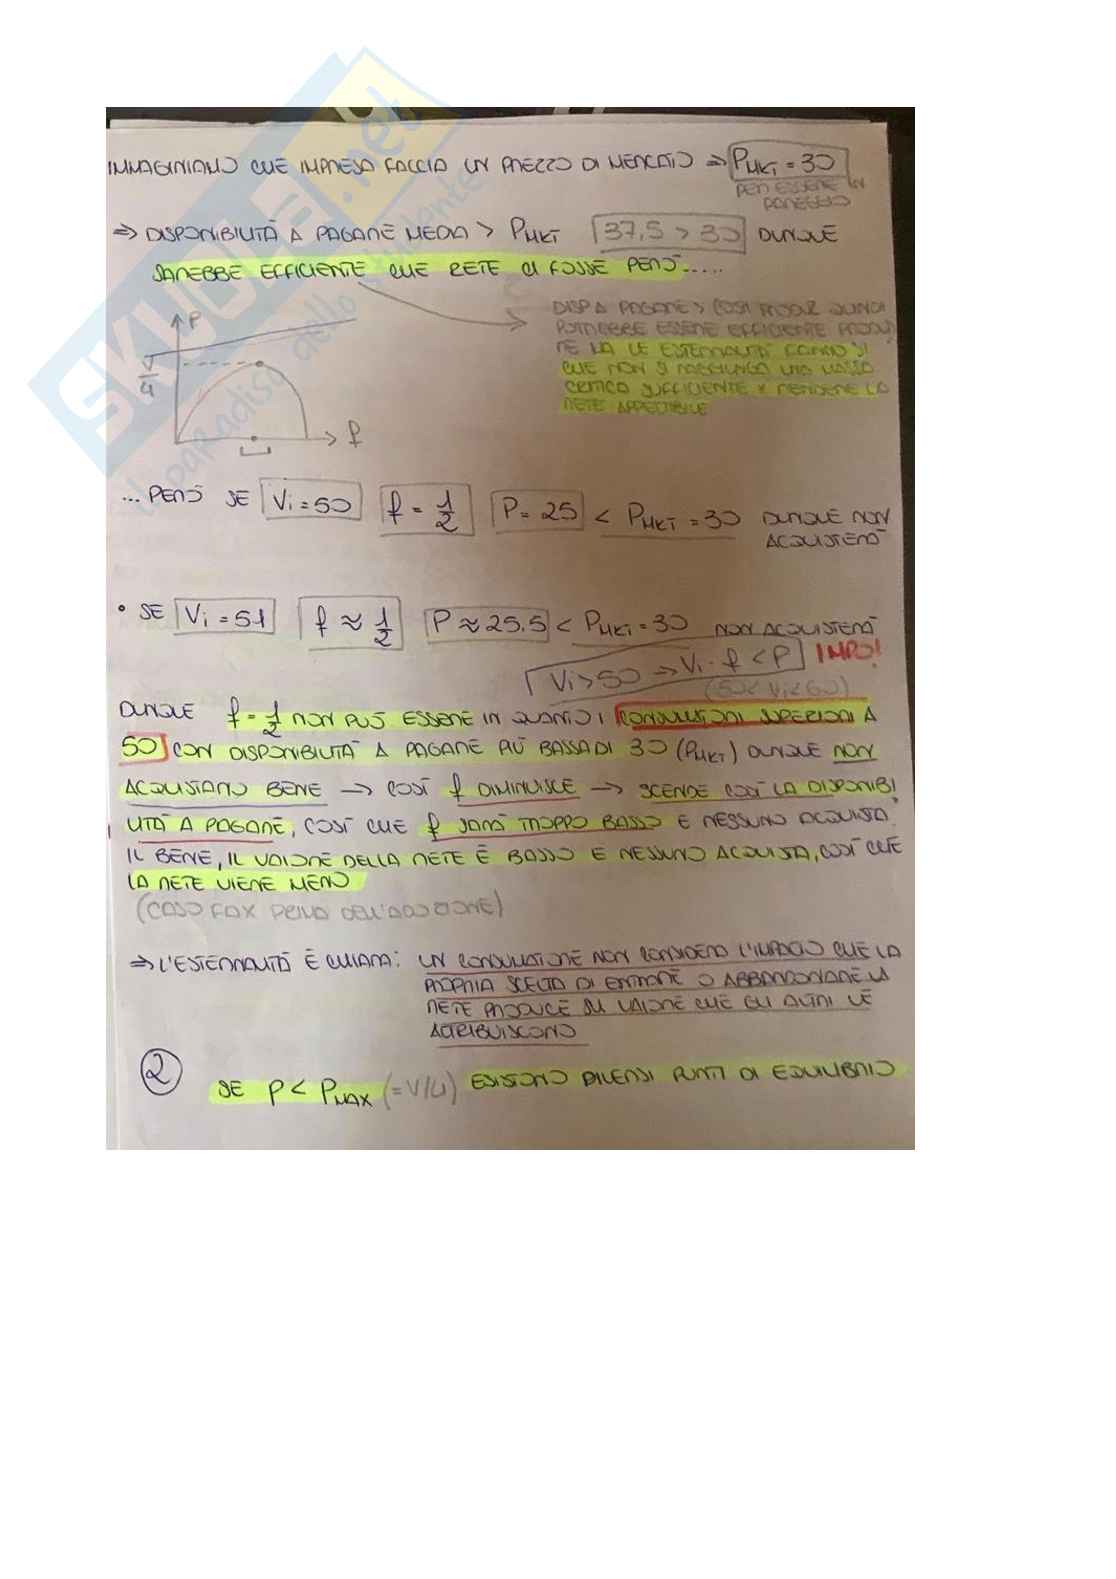 IMMAGINIAMO CHE IMPRESA FACCIA UN PREZZO DI MERCATO ⇒ PMKT = 30
PER ESSERE IN
PAREGGIO
⇒ DISPONIBILITÀ A PAGARE MEDIA > PMKT 37,5 > 30 DUNQUE
SAREBBE EFFICIENTE CHE RETE CI FOSSE PERÒ.....
DISP A PAGARE > COSTI PRODUZ QUINDI
POTREBBE ESSERE EFFICIENTE PRODUR
RE MA LE ESTERNALITÀ FANNO SI
CHE NON SI RAGGIUNGA UNA MASSA
CRITICA SUFFICIENTE X RENDERE LA
RETE APPETIBILE
P
V/4
f
... PERÒ SE Vi = 50 f = 1/2 P = 25 < PMKT = 30 DUNQUE NON
ACQUISTERÀ
• SE Vi = 51 f ≈ 1/2 P ≈ 25.5 < PMKT = 30 NON ACQUISTERÀ
Vi > 50 → Vi · f < P IMPO!
(50 < Vi < 60)
DUNQUE f = 1/2 NON PUÒ ESSERE IN QUANTO I CONSUMATORI SUPERIORI A
50 CON DISPONIBILITÀ A PAGARE PIÙ BASSA DI 30 (PMKT) DUNQUE NON
ACQUISTANO BENE → COSÌ f DIMINUISCE → SCENDE COSÌ LA DISPONIBI
LITÀ A PAGARE, COSÌ CHE f SARÀ TROPPO BASSO E NESSUNO ACQUISTA
IL BENE, IL VALORE DELLA RETE È BASSO E NESSUNO ACQUISTA, COSÌ CHE
LA RETE VIENE MENO
(CASO FAX PRIMA DELL'ADOZIONE)
⇒ L'ESTERNALITÀ È CHIARA: UN CONSUMATORE NON CONSIDERA L'IMPATTO CHE LA
PROPRIA SCELTA DI ENTRARE O ABBANDONARE LA
RETE PRODUCE SU VALORE CHE GLI ALTRI LE
ATTRIBUISCONO
2 SE P < PMAX (= V/4) ESISTONO DIVERSI PUNTI DI EQUILIBRIO
SKUOLA.net
il paradiso dello studente